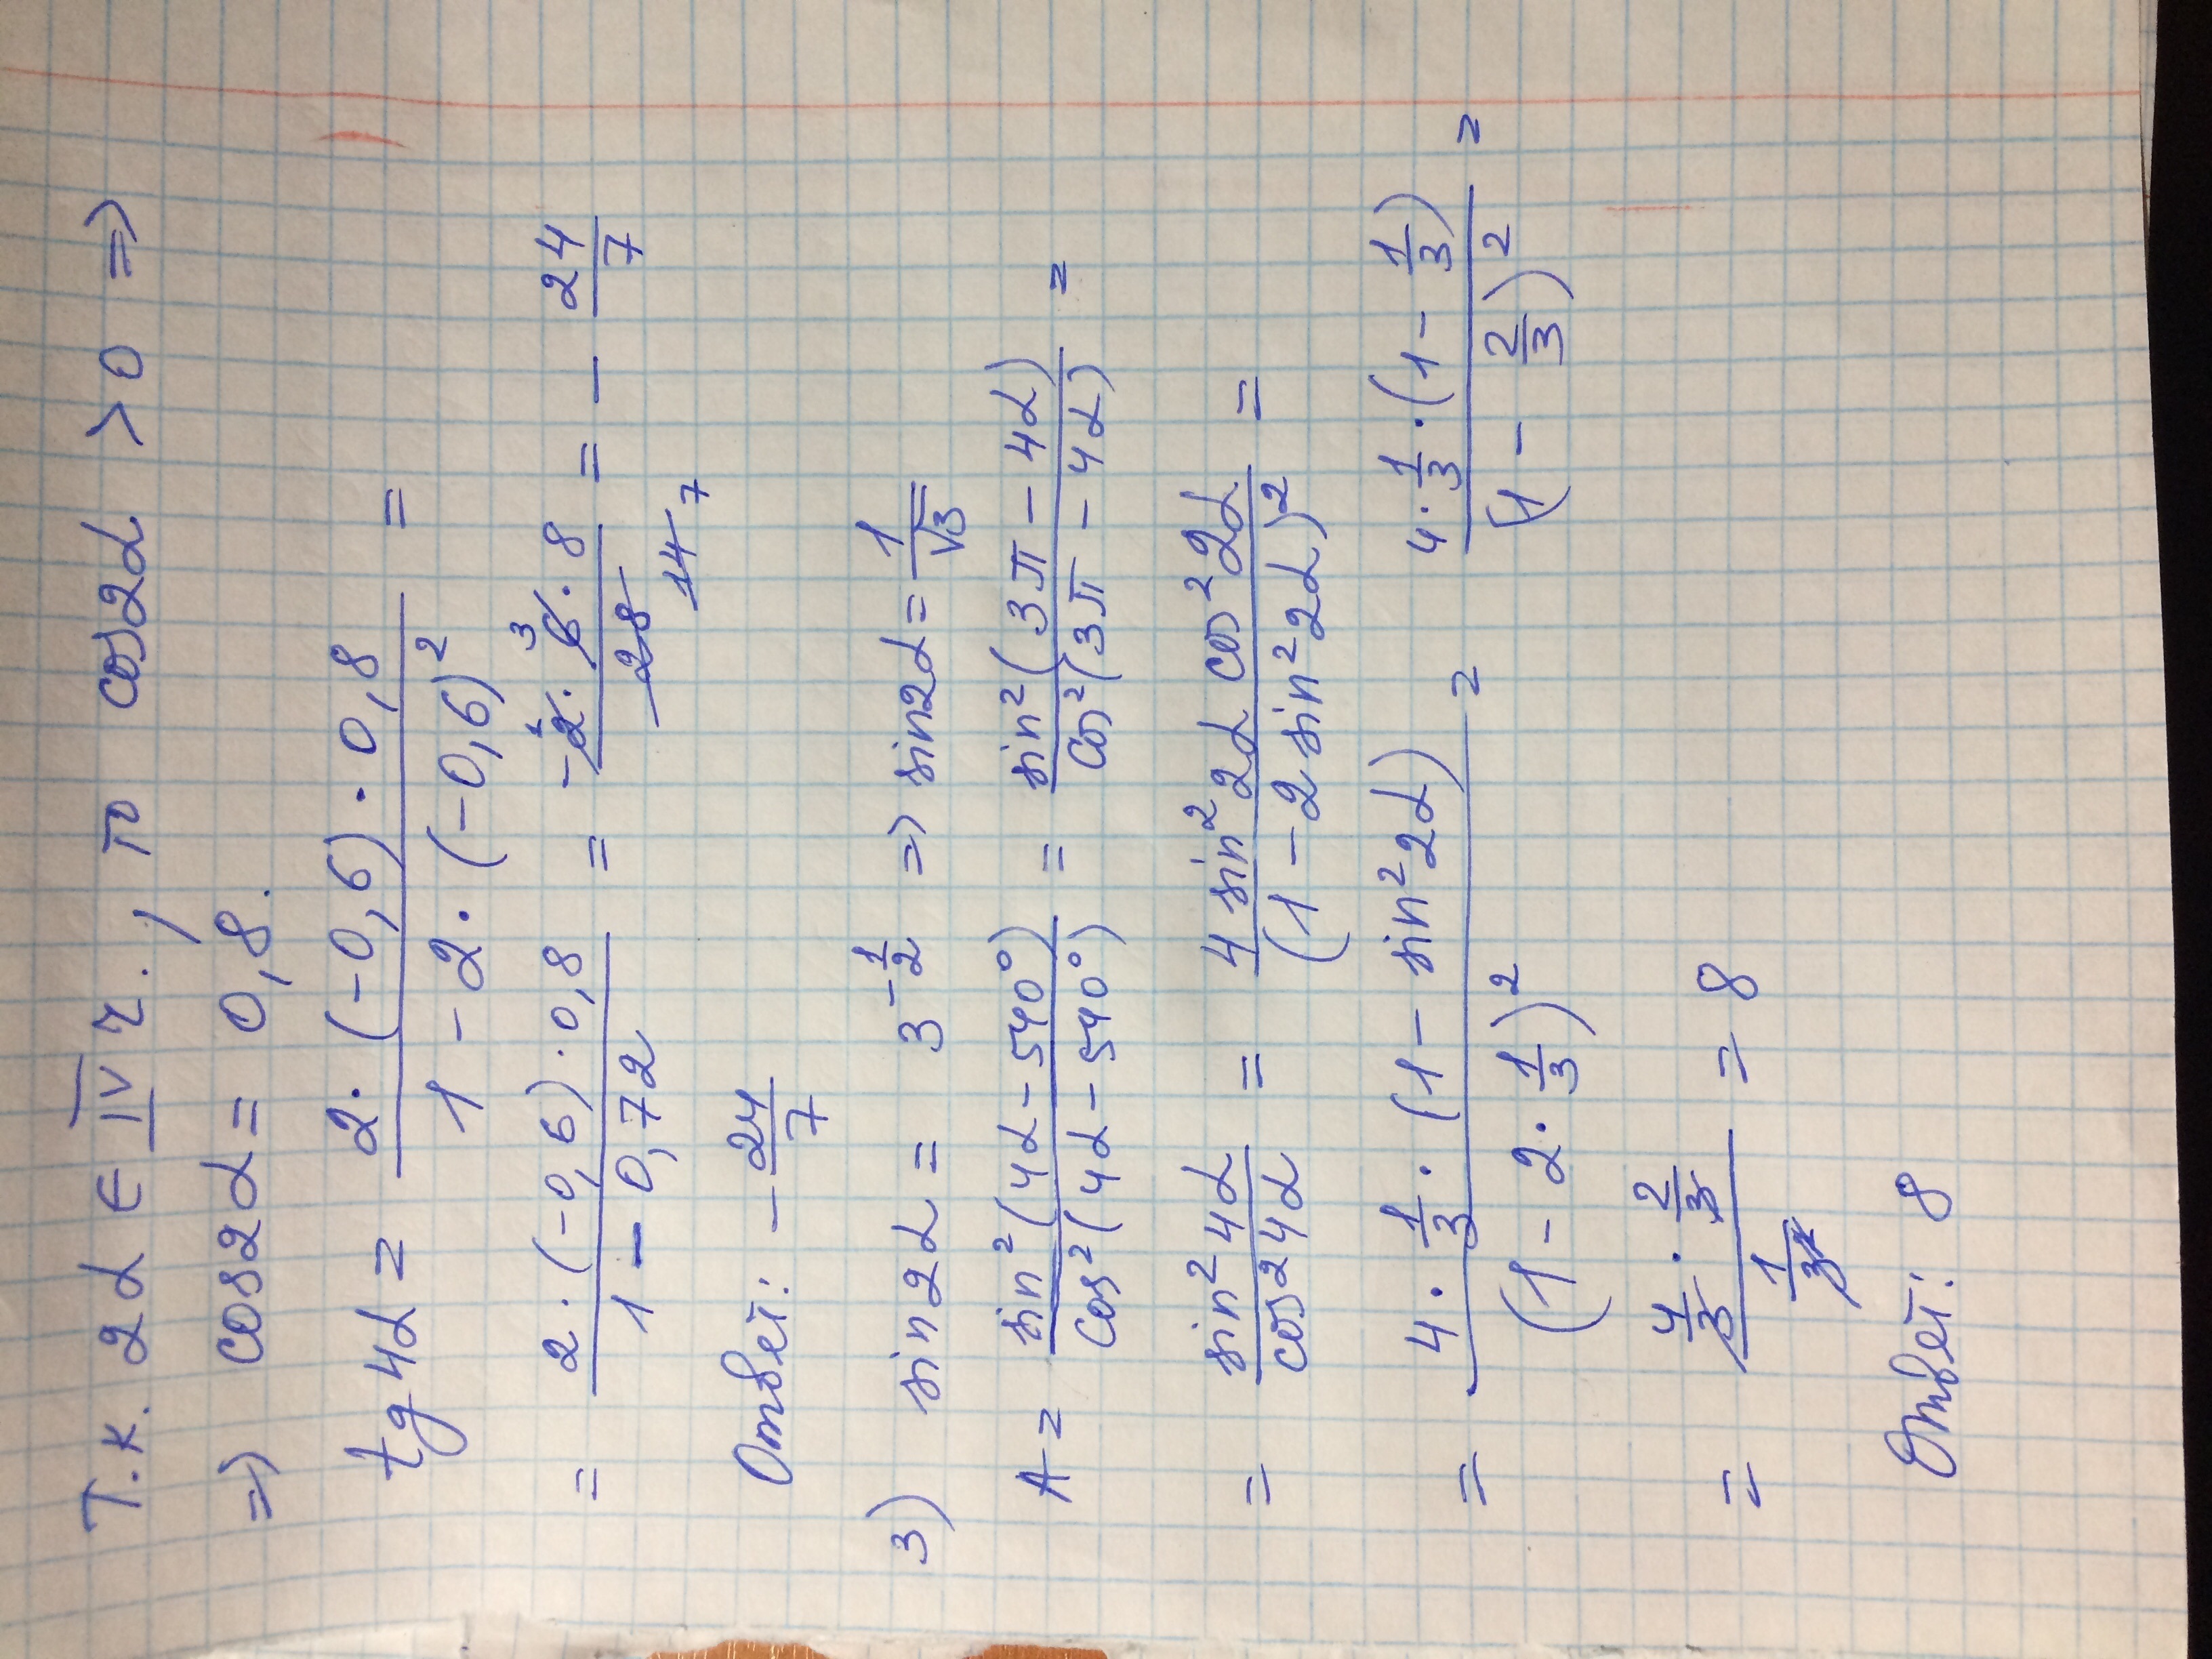 Т.к. 2α ∈ IV ч., то cos2α > 0 =>
=> cos2α = 0,8.
tg4α = (2·(-0,6)·0,8)/(1 - 2·(-0,6)²) =
= (2·(-0,6)·0,8)/(1 - 0,72) = (-2·6·8)/28 = -24/7
1 3 14 7
Ответ: -24/7
3) sin2α = 3^(-1/2) => sin2α = 1/√3
A = sin²(4α - 540°)/cos²(4α - 540°) = sin²(3π - 4α)/cos²(3π - 4α) =
= sin²4α/cos²4α = 4 sin²2α cos²2α/(1 - 2sin²2α)² =
= 4·1/3·(1 - sin²2α)/(1 - 2·1/3)² = 4·1/3·(1 - 1/3)/(1 - 2/3)² =
= (4/3·2/3)/(1/3²) = 8
Ответ: 8